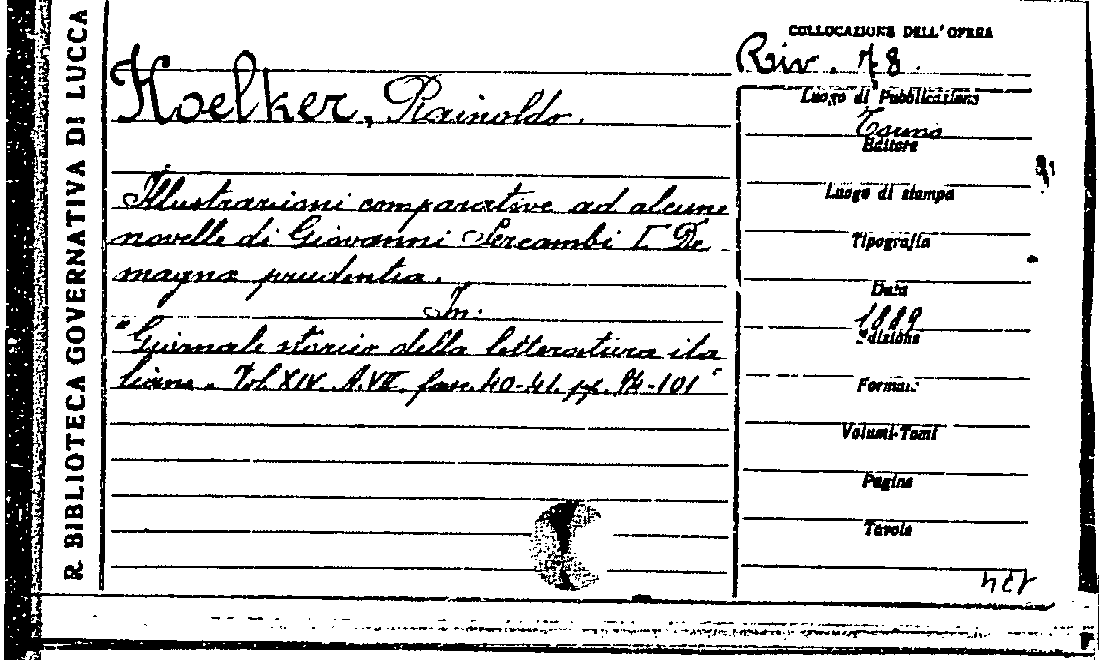 R. BIBLIOTECA GOVERNATIVA DI LUCCA
COLLOCAZIONE DELL'OPERA
Riv. 78.
Hoelker, Rainoldo.
Illustrazioni comparative ad alcune
novelle di Giovanni Sercambi I. De
magna prudentia.
In:
"Giornale storico della letteratura ita
liana. Vol XIV. A. VII. fasc. 40-41. pp. 94-101"
Luogo di Pubblicazione
Torino
Editore
Luogo di stampa
Tipografia
Data
1889
Edizione
Formato
Volumi-Tomi
Pagine
Tavole